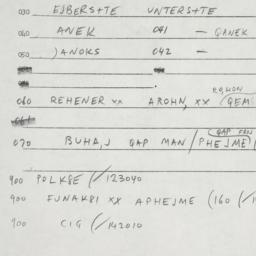 030 EJBERS+TE UNTERS+TE
040 ANEK 041 - QANEK
050 JANOKS 042 -
060 REHENER xx AROHN, xx (QEMI
070 BUHA, J QAP MAN / PHEJME)
900 POLK8E (/123040
900 FJNAK8I xx APHEJME (160 (/1
900 CIG (/142010